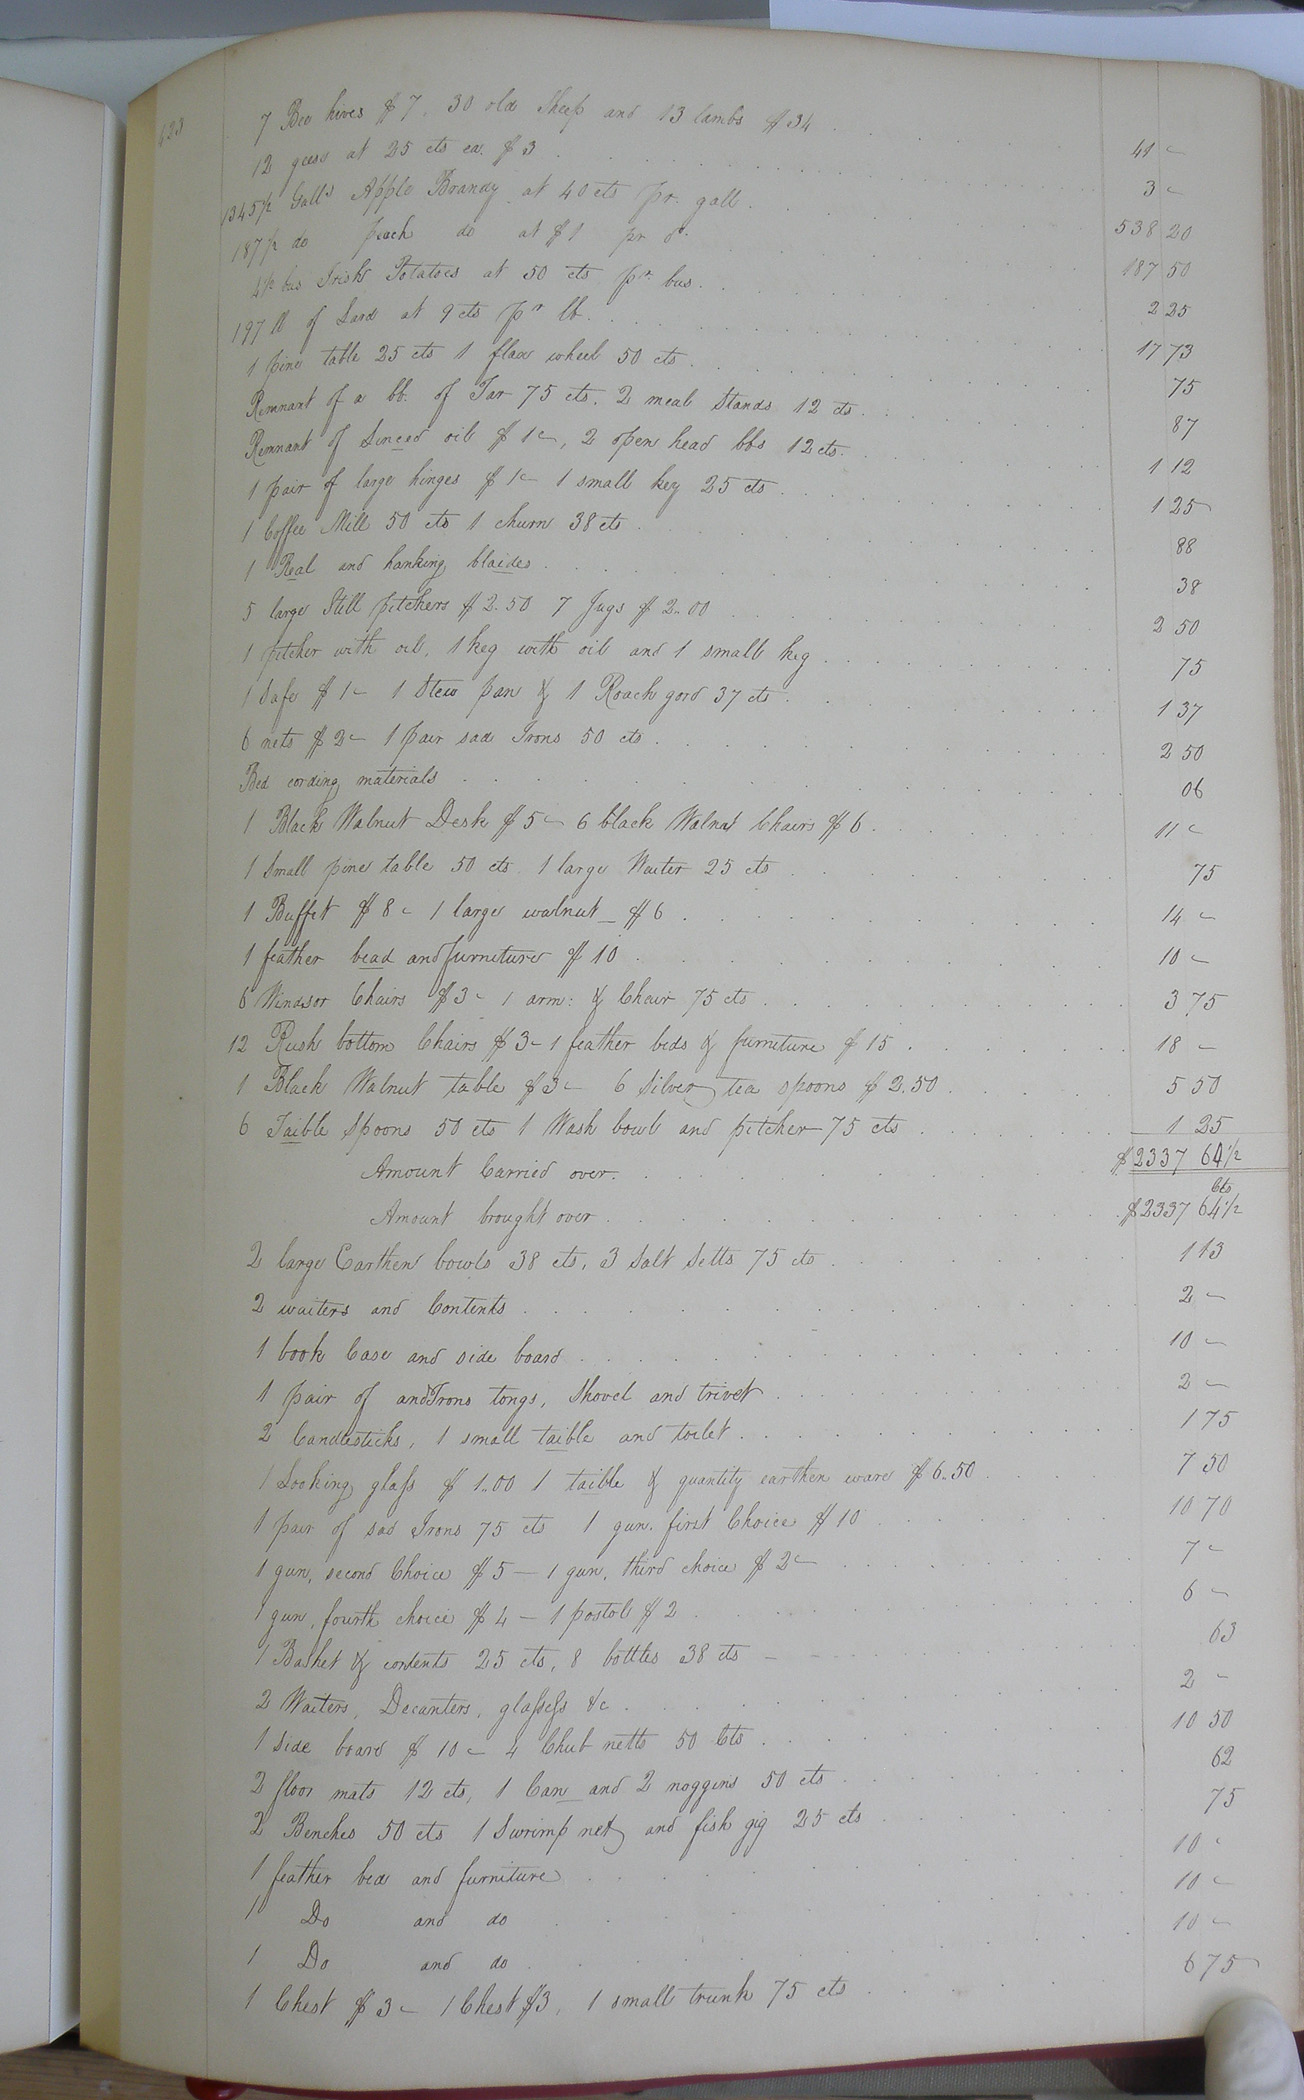 423
7 Bee hives $7. 30 old Sheep and 13 lambs $34 41 -
12 geese at 25 cts ea. $3 3 -
1345 1/2 Galls Apple Brandy at 40 cts pr. gall. 538 20
187 1/2 do peach do at $1 pr do. 187 50
4 1/2 bus Irish Potatoes at 50 cts pr. bus. 2 25
197 lb of Lard at 9 cts pr lb. 17 73
1 pine table 25 cts 1 flax wheel 50 cts. 75
Remnant of a bb. of Tar 75 cts. 2 meal Stands 12 cts. 87
Remnant of Linceed oil $1-, 2 open head bbs 12 cts. 1 12
1 pair of large hinges $1- 1 small key 25 cts 1 25
1 Coffee Mill 50 cts 1 churn 38 cts 88
1 Real and hanking blaides 38
5 large Still pitchers $2.50 7 Jugs $2..00 2 50
1 pitcher with oil, 1 keg with oil and 1 small keg 75
1 Safe $1- 1 Stew pan & 1 Roach gord 37 cts 1 37
6 nets $2- 1 pair sad Irons 50 cts 2 50
Bed cording materials 06
1 Black Walnut Desk $5- 6 black Walnut Chairs $6 11 -
1 Small pine table 50 cts. 1 large Waiter 25 cts 75
1 Buffet $8- 1 large walnut _ $6 14 -
1 feather bead and furniture $10 10 -
6 Windsor Chairs $3- 1 arm: & Chair 75 cts 3 75
12 Rush bottom Chairs $3- 1 feather beds & furniture $15 18 -
1 Black Walnut table $3- 6 Silver tea spoons $2.50 5 50
6 Taible Spoons 50 cts 1 Wash bowl and pitcher 75 cts 1 25
Amount Carried over. $2337 64 1/2
Cts
Amount brought over $2337 64 1/2
2 large Earthen bowls 38 cts, 3 Salt Setts 75 cts 1 13
2 waiters and Contents 2 -
1 book Case and side board 10 -
1 pair of andIrons tongs, Shovel and trivet 2 -
2 Candlesticks, 1 small taible and toilet 1 75
1 Looking glass $1..00 1 taible & quantity earthen ware $6..50 7 50
1 pair of sad Irons 75 cts 1 gun. first Choice $10 10 70
1 gun, second Choice $5 - 1 gun, third choice $2- 7 -
1 gun, fourth choice $4 - 1 postol $2 6 -
1 Basket & contents 25 cts, 8 bottles 38 cts 63
2 Waiters, Decanters, glasses &c 2 -
1 Side board $10- 4 Chub netts 50 Cts 10 50
2 floor mats 12 cts, 1 Can_ and 2 noggins 50 cts 62
2 Benches 50 cts 1 Swrimp net and fish gig 25 cts 75
1 feather bed and furniture 10 -
1 Do and do 10 -
1 Do and do 10 -
1 Chest $3- 1 Chest $3, 1 small trunk 75 cts 6 75